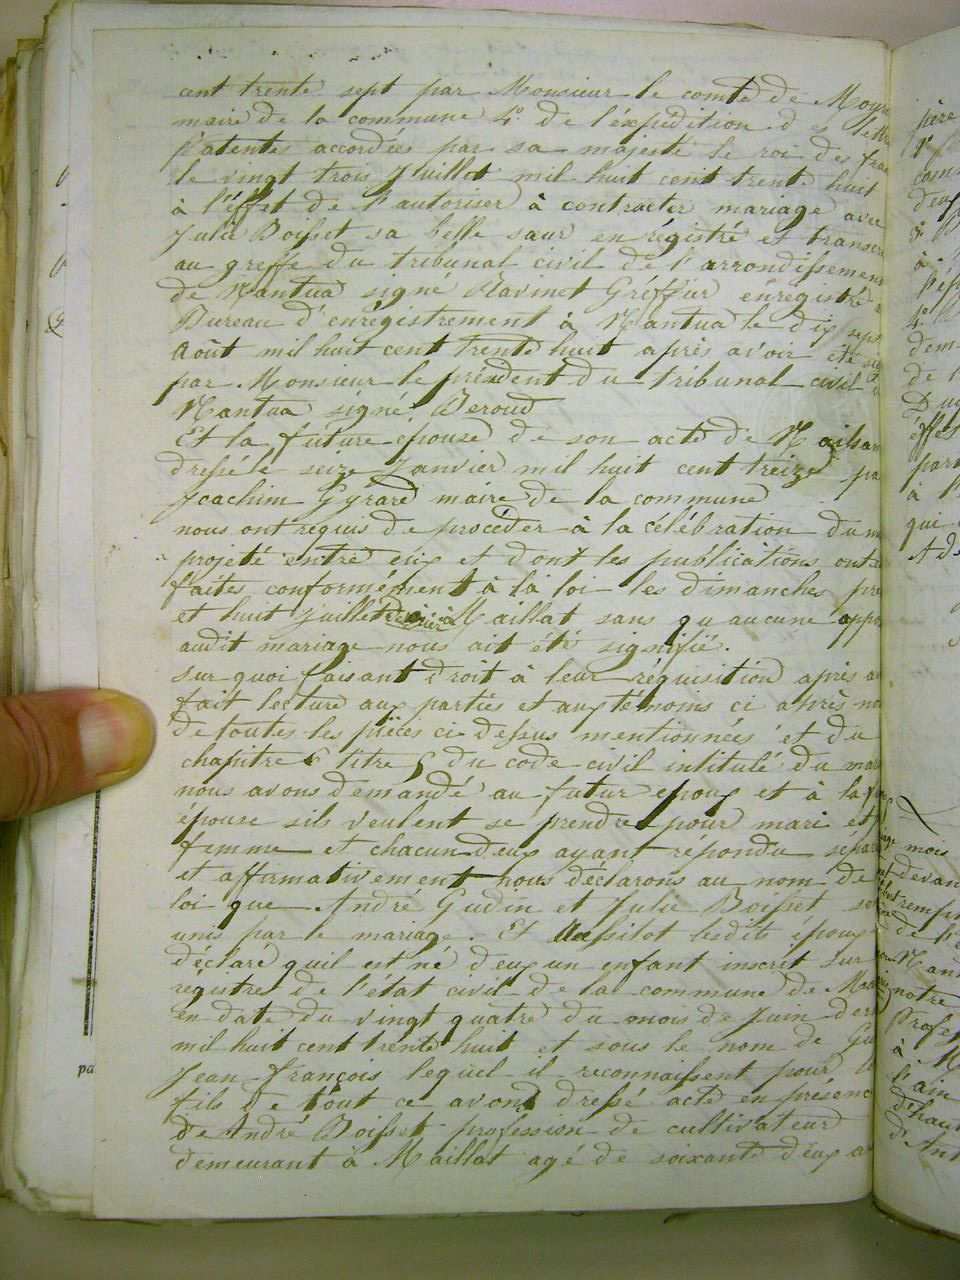 cent trente sept par Monsieur le comte de Moyr
maire de la commune 4° de l'éxpédition des lettr
patentes accordées par sa majesté le roi des fran
le vingt trois Juillet mil huit cent trente huit
à l'éffet de l'autoriser à contracter mariage avec
Julie Boisset sa belle sœur enrégistré et transcri
au greffe du tribunal civil de l'arrondissement
de Nantua signé Ravinet Gréffier énrégistré
Bureau d'enrégistrement à Nantua le dix sept
Août mil huit cent trente huit après avoir été
par Monsieur le président du tribunal civil
Nantua signé Beroud
Et la future épouse de son acte de Naissan
dressé le seize Janvier mil huit cent treize pa
Joachim Gyrard maire de la commune
nous ont requis de procéder à la célébration du m
projeté entre eux et dont les publications ont é
faites conformément à la loi les dimanches pre
et huit Juillet dernier à Maillat sans qu aucune oppo
audit mariage nous ait été signifié.
sur quoi faisant droit à leur réquisition après a
fait lecture aux parties et aux témoins ci après no
de toutes les pièces ci dessus mentionnées et du
chapitre 6 titre 5 du code civil intitulé du mar
nous avons demandé au futur epoux et à la fu
épouse sils veulent se prendre pour mari et
femme et chacun deux ayant répondu sépar
et affirmativement nous déclarons au nom de
loi que André Gudin et Julie Boisset so
unis par le mariage. Et aussitot lesdits époux
déclaré quil est né deux un enfant inscrit sur
régistre de l'état civil de la commune de Ma
en date du vingt quatre du mois de Juin der
mil huit cent trente huit et sous le nom de Gu
Jean françois lequel il reconnaissent pour l
fils de tout ce avons dressé acte en présenc
de André Boisset profession de cultivateur
demeurant à Maillat agé de soixante deux a